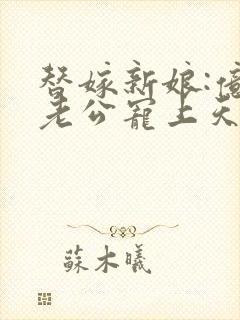 替嫁新娘:億
老公寵上天
蘇木曦